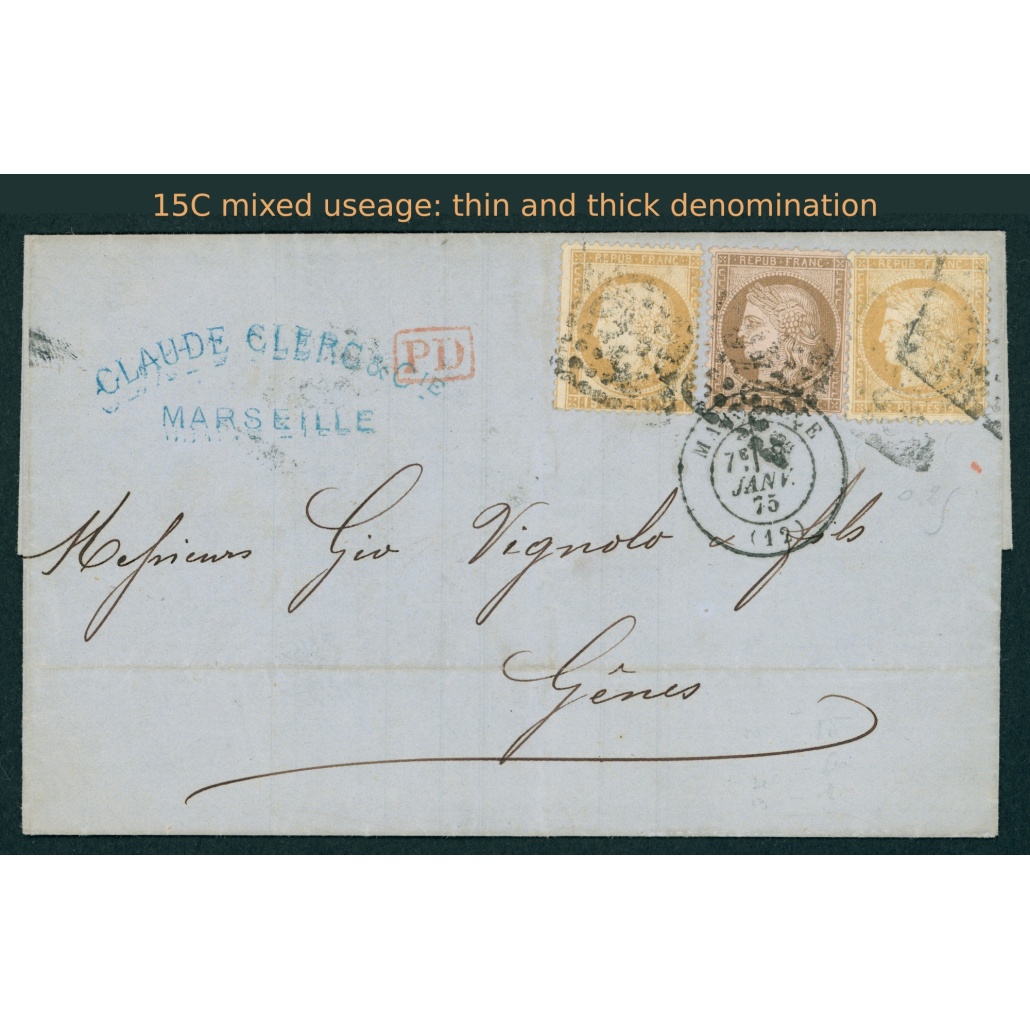 15C mixed useage: thin and thick denomination
REPUB · FRANC
REPUB · FRANC
REPUB · FRANC
CLAUDE CLERC & CIE
MARSEILLE
PD
7E
JANV.
75
(12)
0.25
Messieurs Gio Vignolo & fils
Gênes